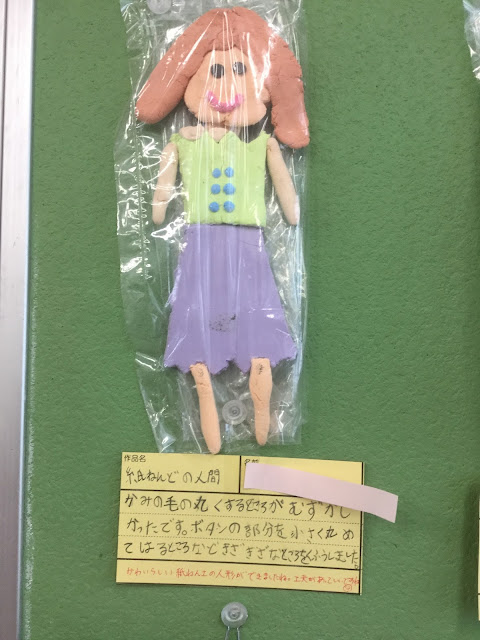 作品名
紙ねんどの人間
かみの毛の丸くするところがむずかし
かったです。ボタンの部分を小さく丸め
てはるところなどぎざぎざなところをくふうしました。
かわいらしい紙ねん土の人形ができましたね。工夫が